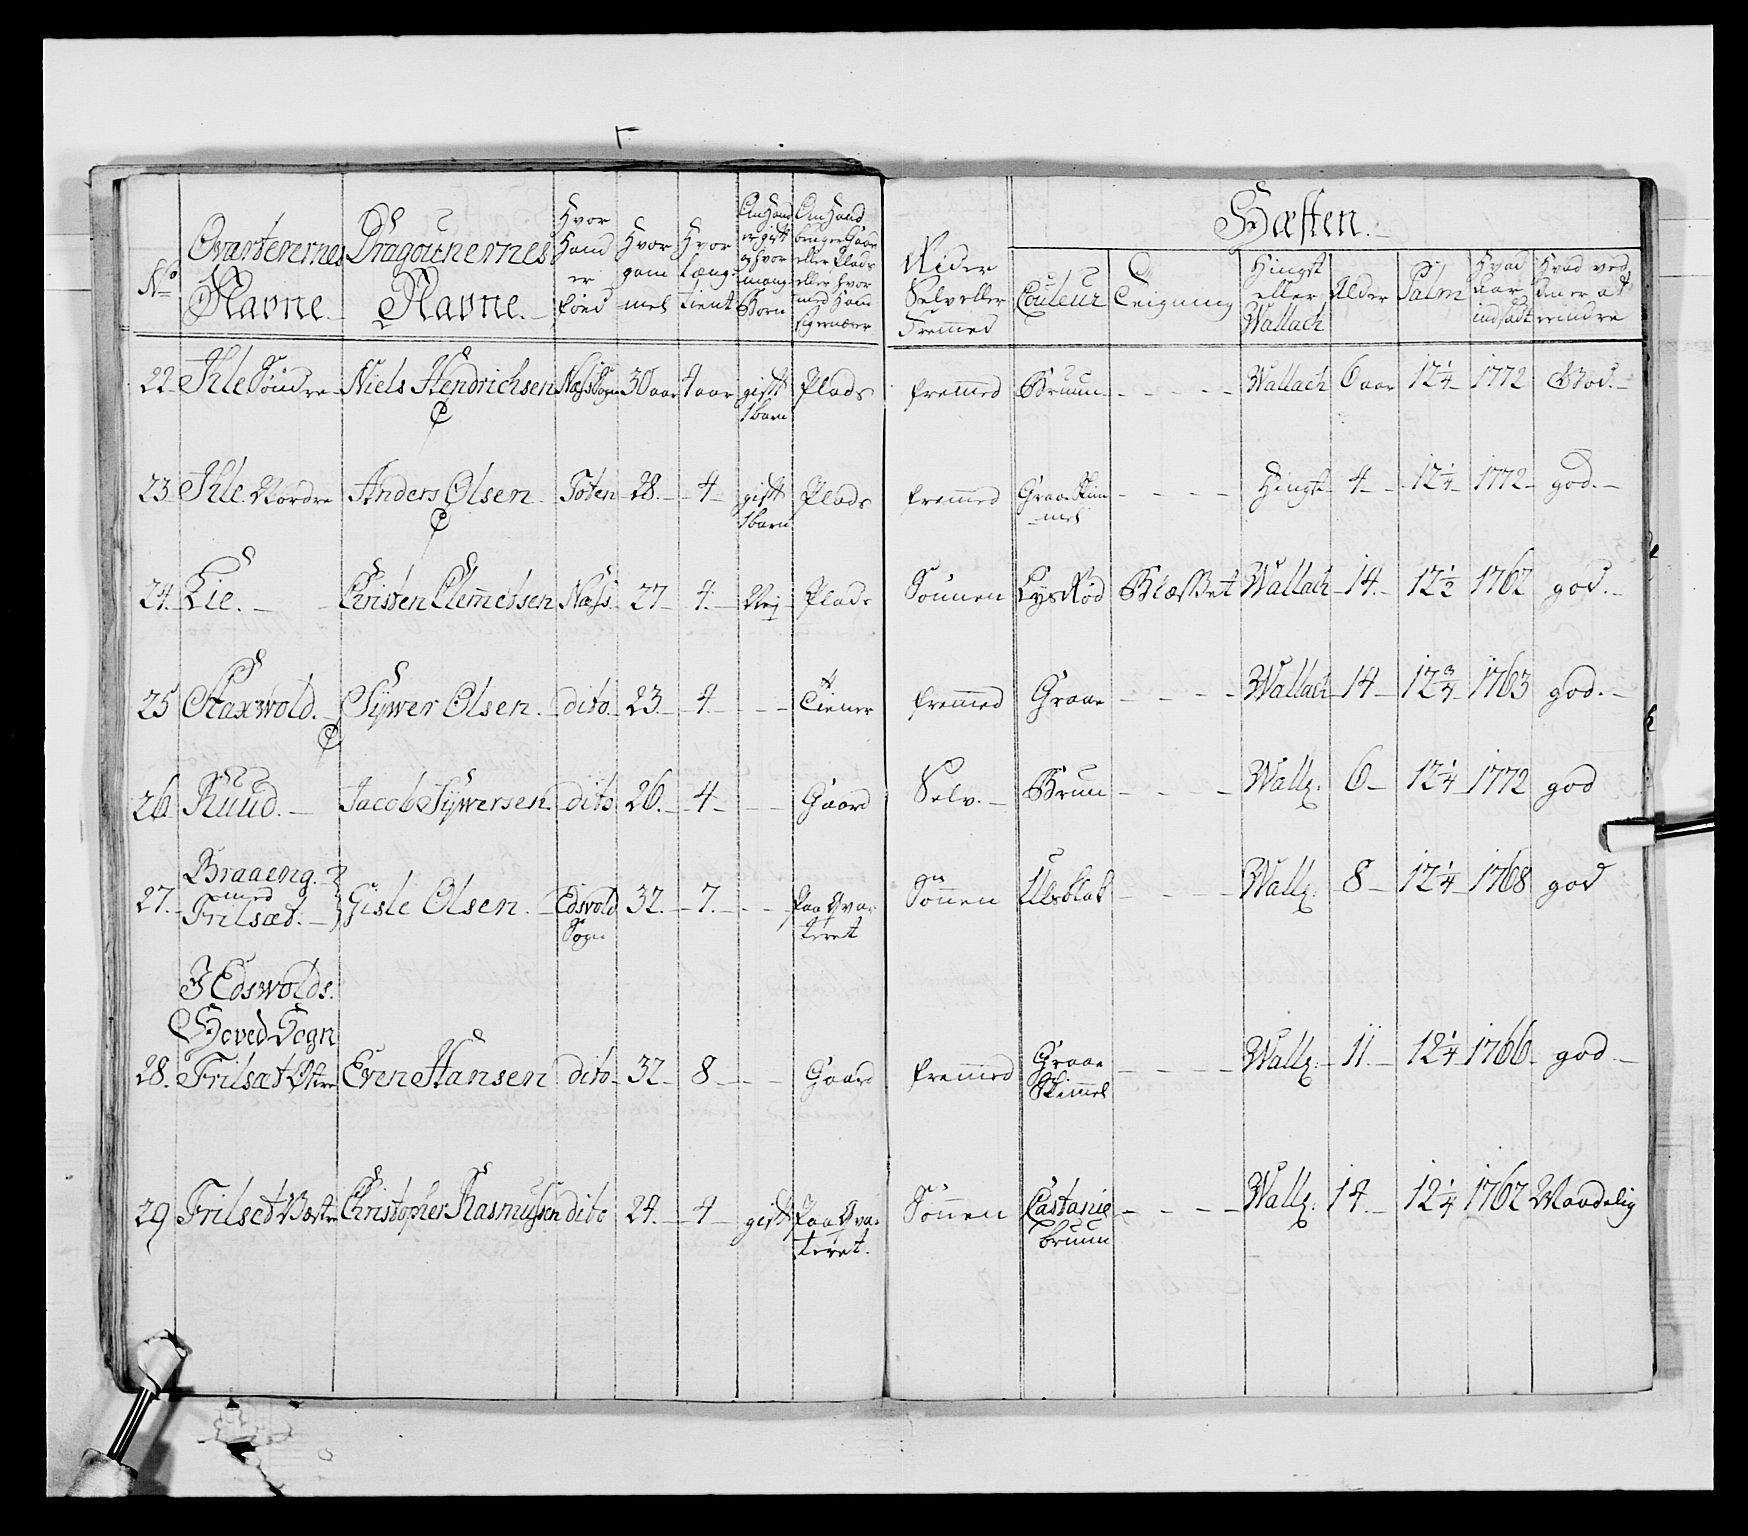 No
Qvarterernes Navne
Dragounernes Navne.
Hvor Hand er föed
Hvor gam mel
Hvor læng tient
Om Hand er gift og hvor mang Börn
Om Hand bruger Gaar eller Plads eller hvor med Hand sig ernærer
Rider Selv eller Fremmed
Hæsten.
Couleur
Teigning
Hingst eller Wallach
Alder
Palm
Hvad aar indsadt
Hvad ved den er at erindre
22 Ihle Söndre Niels Hendrichsen Næss Sogn 30 aar 4 aar gift 1 barn Plads fremmed Bruun - - - - Wallach 6 aar 12 1/4 1772 God.
23 Ihle Nordre Anders Olsen Toten 28. 4 gift 1 barn Plads fremmed Graae Skim mel - - - - Hingst 4 12 1/4 1772 god.
24. Lie. Christen Clemetsen Næss. 27 4. Nej Plads Sönnen Lys Röd Blæsset Wallach 14. 12 1/2 1762 god.
25 Staxwold. Sÿwer Olsen. dito 23. 4. - - Tiener fremmed Graae - - - - Wallach 14 12 3/4 1763 god.
26. Ruud. Jacob Sÿwersen. dito 26. 4 - - Gaard Selv. Brun - - - - Wall: 6 12 1/4 1772 god
27. Braaeng. med Frilsæt. Gisle Olsen. Edsvold Sogn 32. 7. - - Paa Qvar teret Sönnen Ulsblak - - - - Wall: 8 12 1/4 1768 god
I Edswolds.
Hoved Sogn
28. Frilsæt Østre Even Hansen dito 32 8 - - Gaard fremmed Graae Skimmel - - - - Wall: 11. 12 1/4 1766 god.
29 Frilset Væstre Christopher Rasmussen dito 24. 4 gift Paa Qvar teret. Sönnen Castanie bruun - - - - Wall: 14. 12 1/4 1762 Maadelig